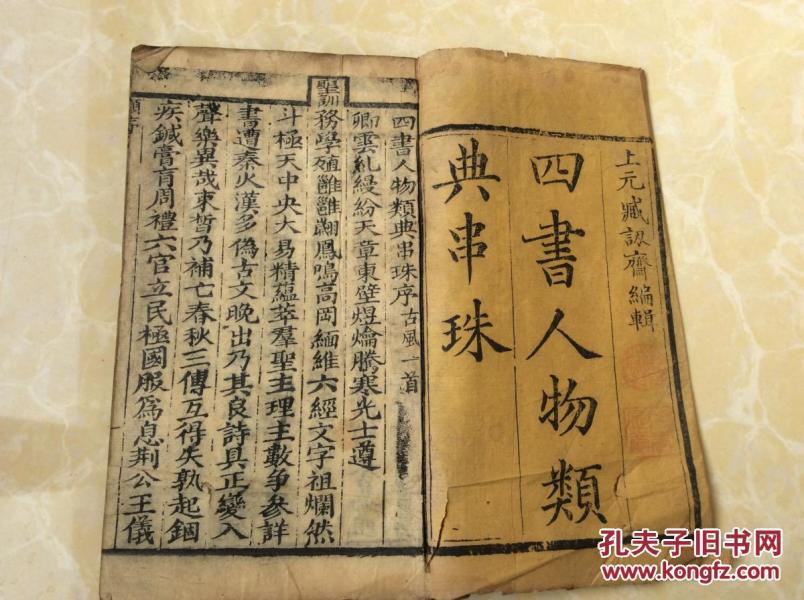 上元臧訒齋編輯
四書人物類
典串珠
四書人物類典串珠序古風一首
卿雲糺縵紛天章東壁煜爚騰寒光士遵
聖訓
務學殖雝雝翽鳳鳴高岡緬維六經文字祖爛然
斗極天中央大易精蘊萃羣聖主理主數爭參詳
書遭秦火漢多偽古文晚出乃其良詩具正變入
聲樂異哉束晳乃補亡春秋三傳互得失孰起錮
疾鍼膏肓周禮六官立民極國服為息荆公王儀
孔夫子旧书网
www.kongfz.com